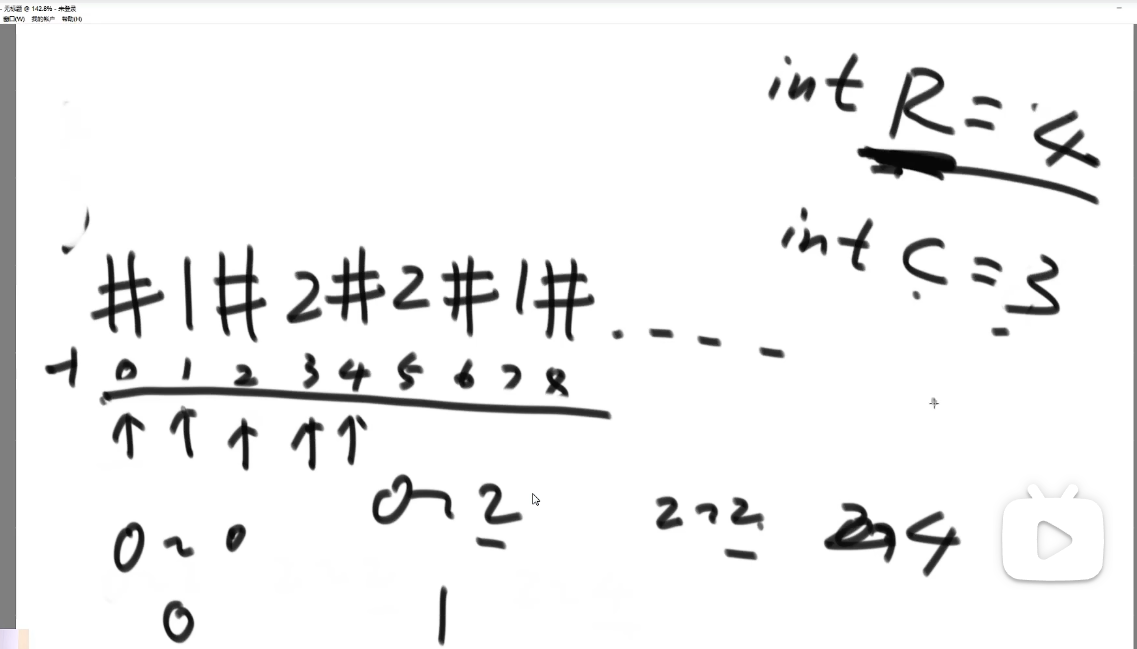 - 无标题 @ 142.8% - 未登录
窗口(W) 我的帐户 帮助(H)
int R = 4
int C = 3
# 1 # 2 # 2 # 1 # . - - -
-1 0 1 2 3 4 5 6 7 8
↑ ↑ ↑ ↑ ↑
0 ~ 2 2 ~ 2 4
0 ~ 0
0 1